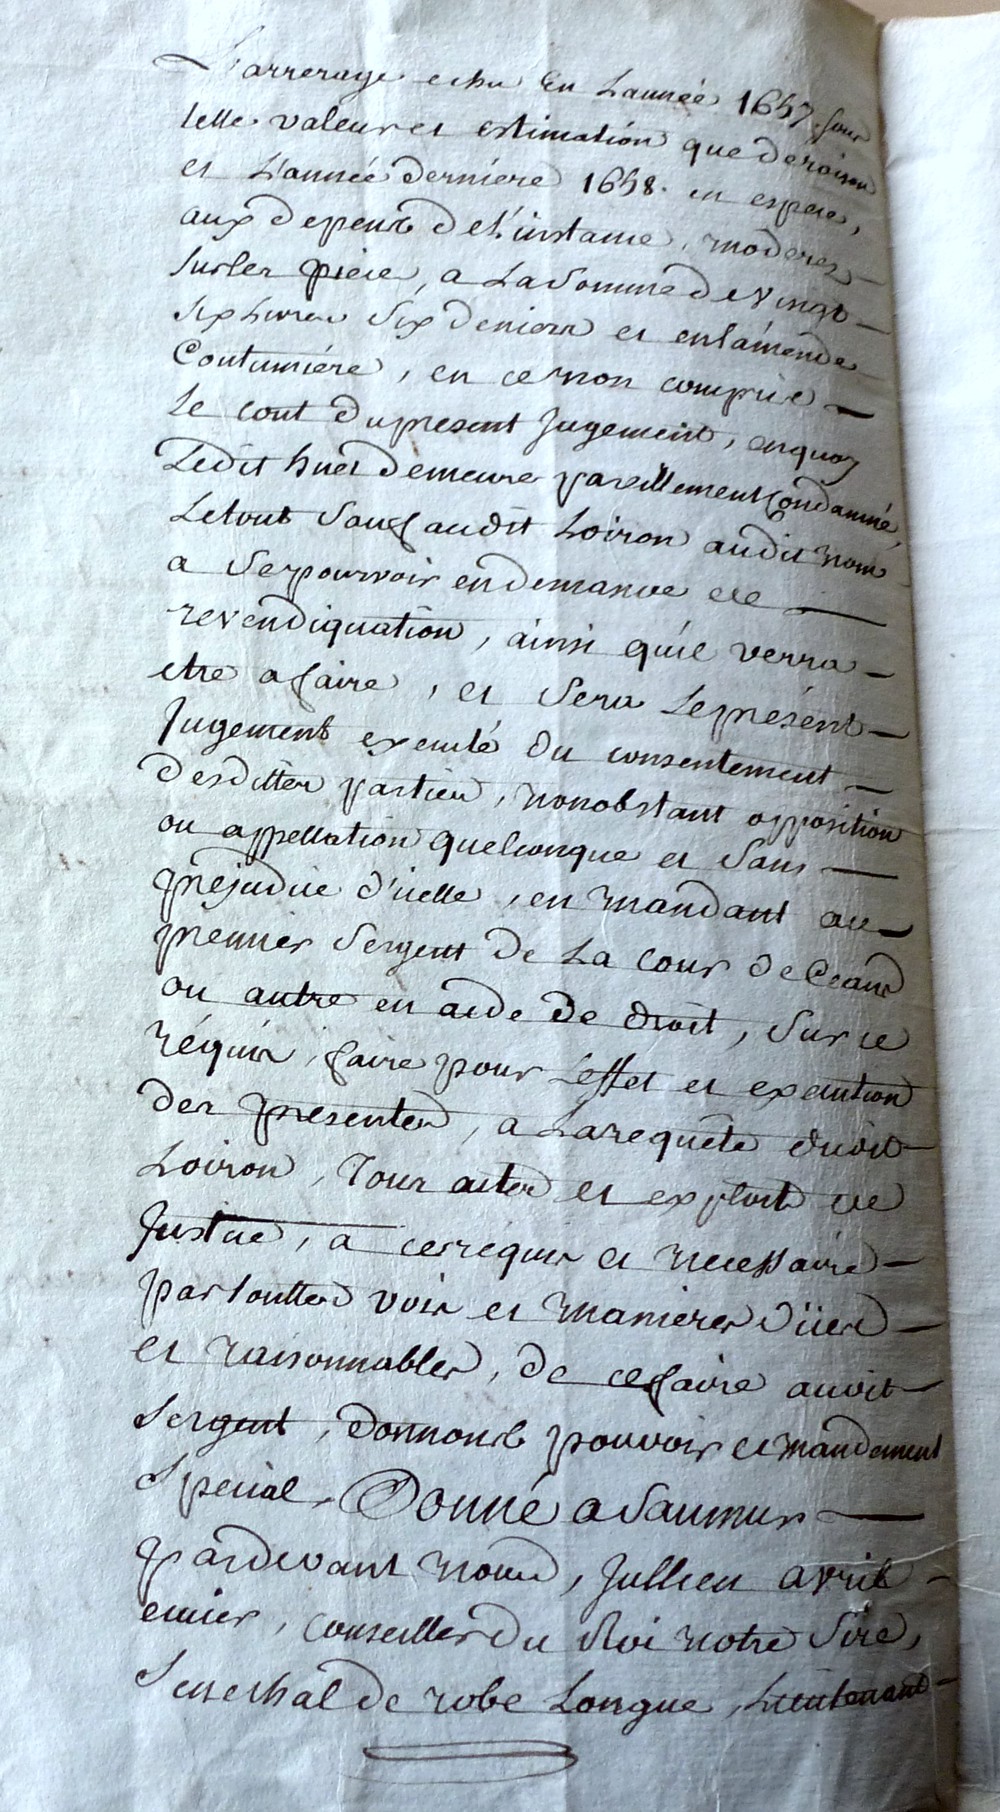 L'arrerage echu En L'année 1657. sous
telle valeur et estimation que de raison
et L'année derniére 1658. en espece,
aux depens de L'instance, moderez
sur les piece, a La Somme de Vingt
six Livres six deniers et en l'amende
Coutumiére, en ce non compris
Le cout du present Jugement, en quoy
Ledit huet demeure pareillement Condamné,
Le tout Sauf audit Loiron audit nom
a Se pourvoir en demande de
revendiquation, ainsi qu'il verra
etre a faire, et Sera Le présent
Jugement executé du consentement
desdittes parties, nonobstant opposition
ou appellation quelconque et Sans
préjudice d'icelle, en mandant au
premier Sergent de La Cour de Ceans
ou autre en aide de droit, Sur ce
réquis, faire pour L'effet et execution
des presentes, a La requête dudit
Loiron, Tous actes et exploits de
Justice, a ce requis et necessaire
par touttes voies et manieres dües
et raisonnables, de ce faire audit
Sergent, donnons pouvoir et mandement
Special. Donné a Saumur
pardevant nous, Jullien avril
ecuier, conseiller du Roi notre Sire,
Senechal de robe Longue, Lieutenant